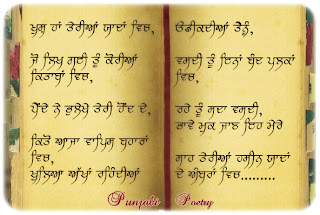 ਖੁਸ਼ ਹਾਂ ਤੇਰੀਆਂ ਯਾਦਾਂ ਵਿਚ,
ਜੋ ਲਿਖ ਗਈ ਤੂੰ ਕੋਰੀਆਂ
ਕਿਤਾਬਾਂ ਵਿਚ,
ਪੈਂਦੇ ਨੇ ਭੁਲੇਖੇ ਤੇਰੀ ਹੋਂਦ ਦੇ,
ਕਿਤੋਂ ਆਜਾ ਵਾਪਿਸ ਬਹਾਰਾਂ
ਵਿਚ,
ਖੁਲਿਆ ਅੱਖਾਂ ਰਹਿੰਦੀਆਂ
ਓਡੀਕਦੀਆਂ ਤੈਨੂੰ,
ਵਗਦੀ ਤੂੰ ਇਨਾਂ ਬੰਦ ਪਲਕਾਂ
ਵਿਚ,
ਰਹੇ ਤੂੰ ਸਦਾ ਵਗਦੀ,
ਭਾਵੇ ਮੁਕ ਜਾਣ ਇਹ ਮੇਰੇ
ਸਾਹ ਤੇਰੀਆਂ ਹਸੀਨ ਯਾਦਾਂ
ਦੇ ਅੰਬਰਾਂ ਵਿਚ.........
Punjabi Poetry